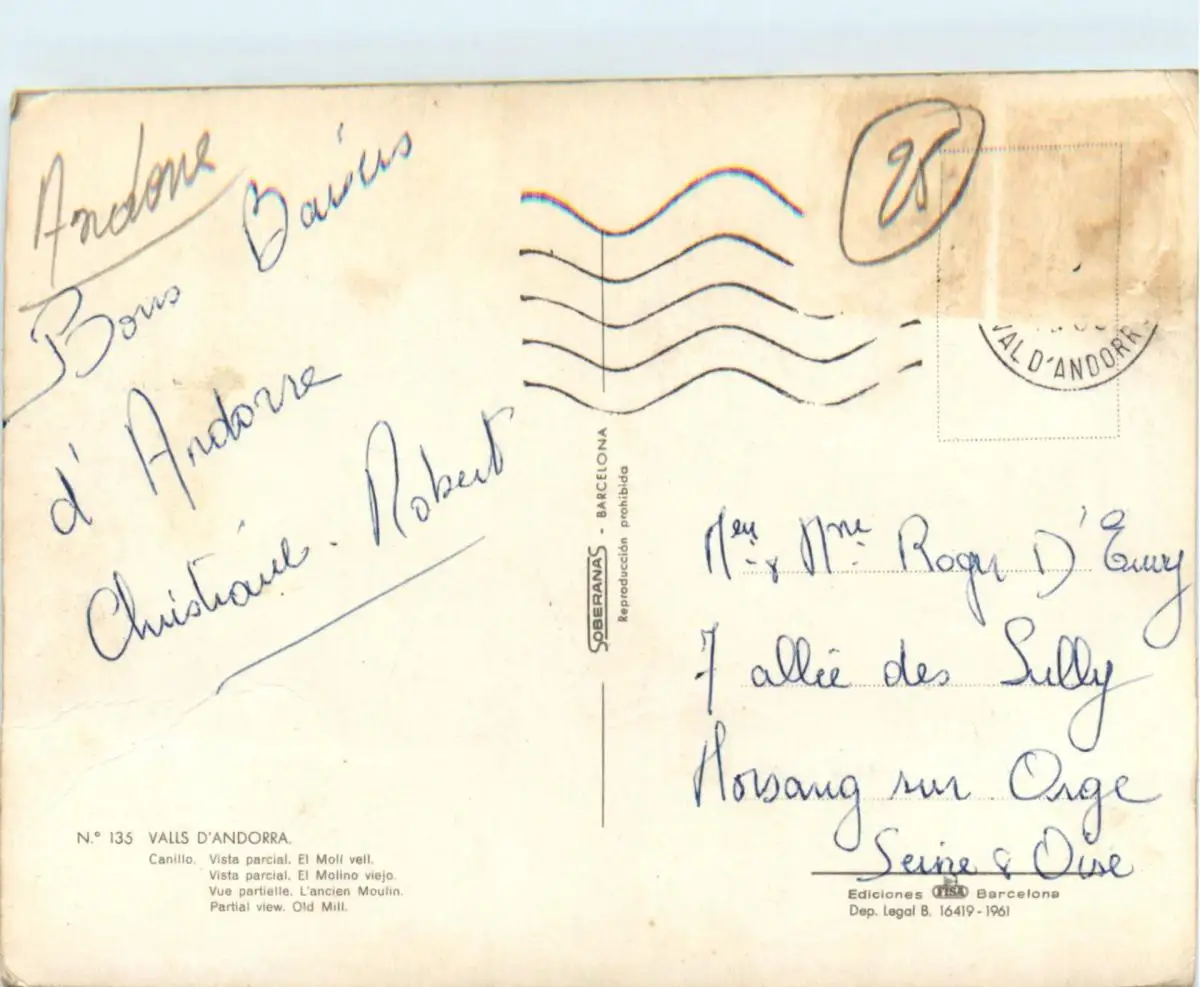 Andorre
Bons Baisers
d'Andorre
Christiane - Robert
25
VAL D'ANDORR
SOBERANAS - BARCELONA
Reproducción prohibida
Mr & Mme Roger D'
7 allée des Sully
Morsang sur Orge
Seine & Oise
N.º 135 VALLS D'ANDORRA.
Canillo. Vista parcial. El Molí vell.
Vista parcial. El Molino viejo.
Vue partielle. L'ancien Moulin.
Partial view. Old Mill.
Ediciones FISA Barcelona
Dep. Legal B. 16419-1961